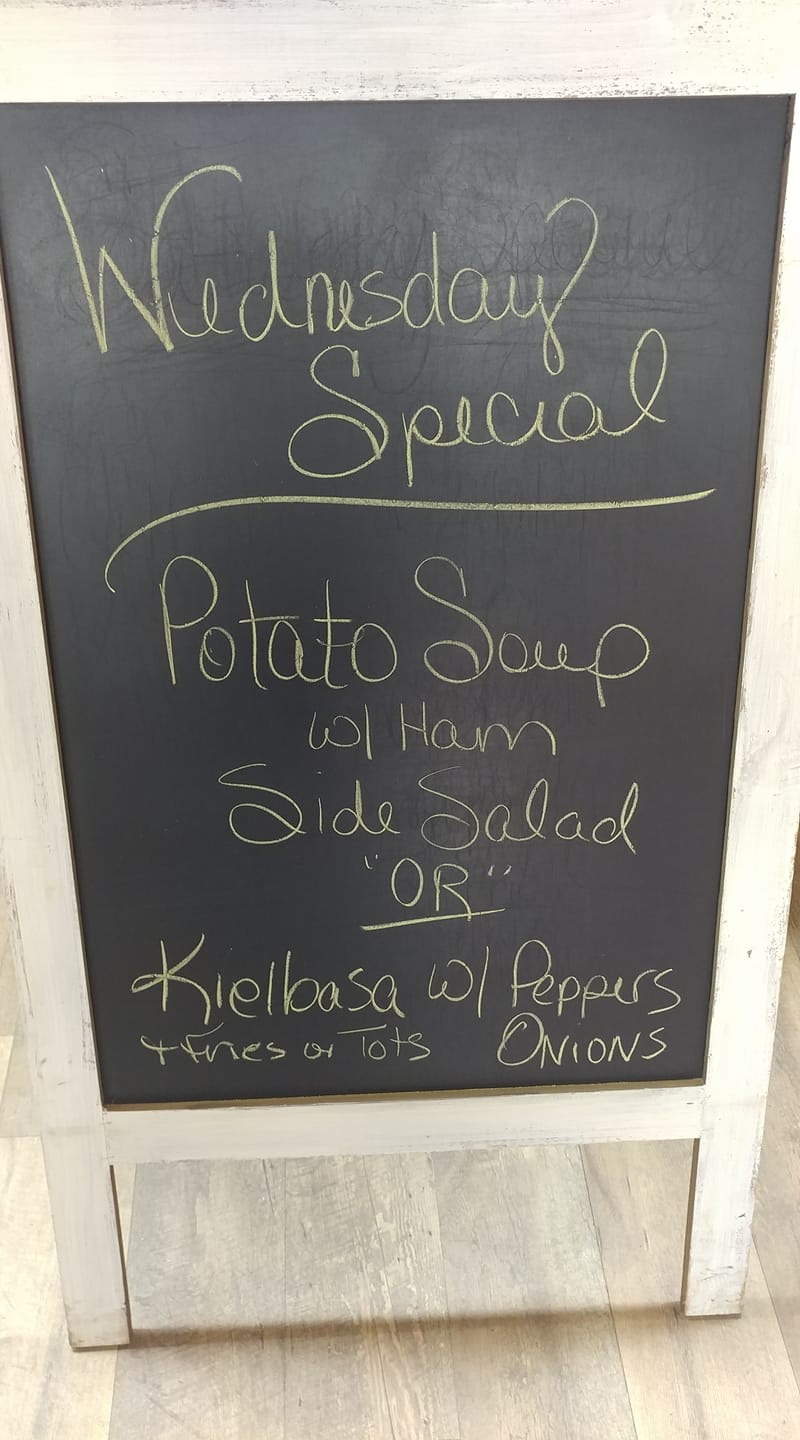 Wednesday
Special
Potato Soup
w/ Ham
Side Salad
"OR"
Kielbasa w/ Peppers
+ Fries or Tots ONIONS